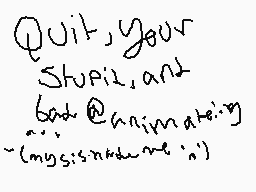 Quit, your
stupid, and
bad @ animateing
~(my sis made me :n')